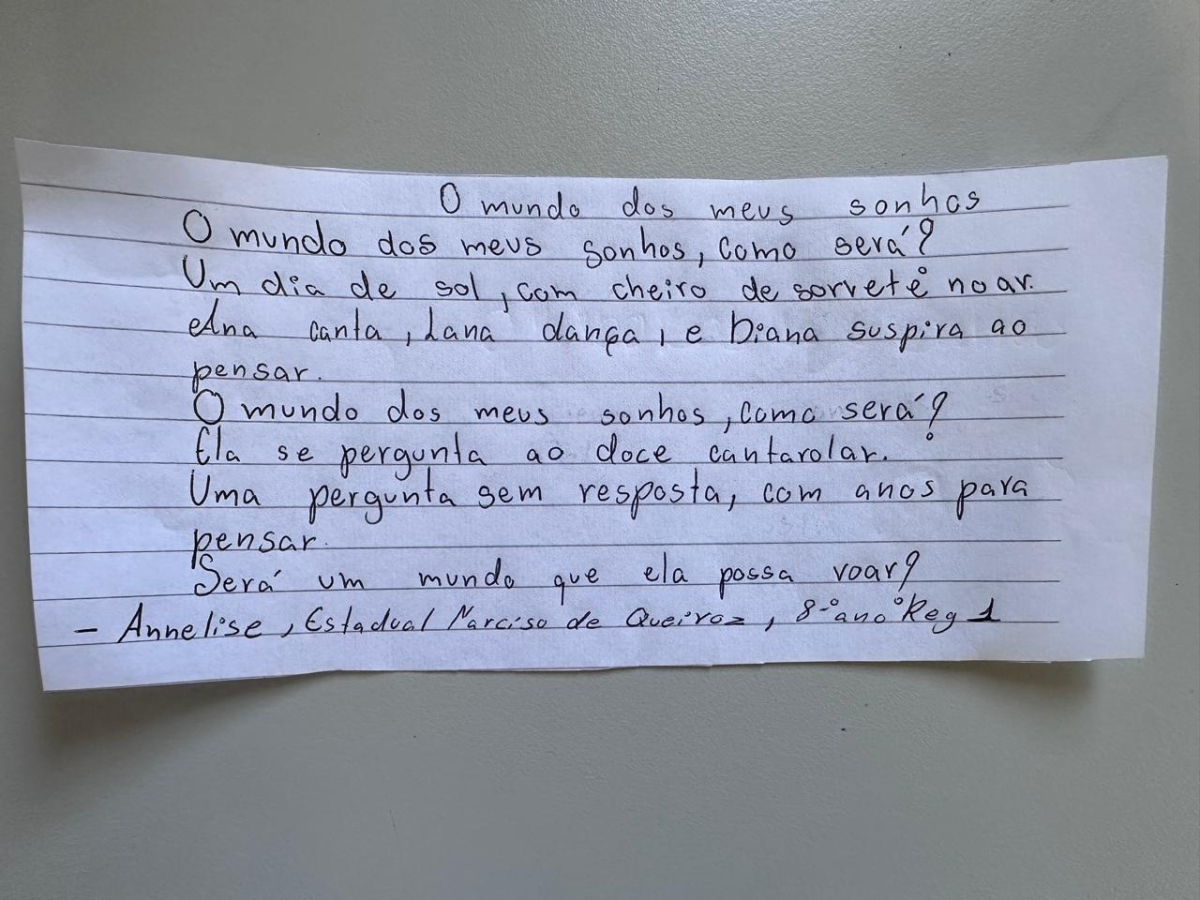 O mundo dos meus sonhos
O mundo dos meus sonhos, como será?
Um dia de sol, com cheiro de sorvete no ar.
Ana canta, Lana dança, e Diana suspira ao
pensar.
O mundo dos meus sonhos, como será?
Ela se pergunta ao doce cantarolar.
Uma pergunta sem resposta, com anos para
pensar.
Será um mundo que ela possa voar?
- Annelise, Estadual Narciso de Queiroz, 8º ano Reg 1